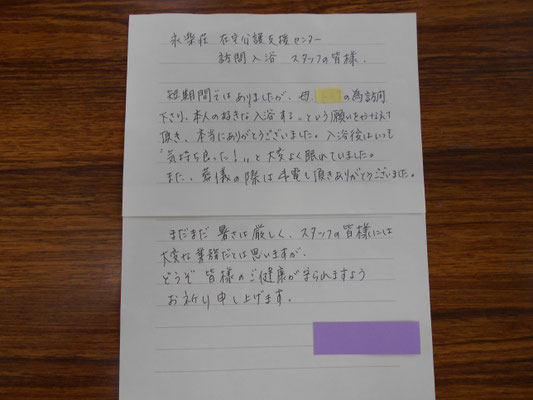 永楽荘 在宅介護支援センター
訪問入浴 スタッフの皆様、
短期間ではありましたが、母、の為訪問
下さり、本人の好きな入浴する。という願いをかなえて
頂き、本当にありがとうございました。入浴後はいつも
"気持ち良った!"と大変よく眠れていました。
また、葬儀の際は弔電し頂きありがとうございました。
まだまだ暑さは厳しく、スタッフの皆様には
大変な業務だとは思いますが、
どうぞ 皆様のご健康が守られますよう
お祈り申し上げます。